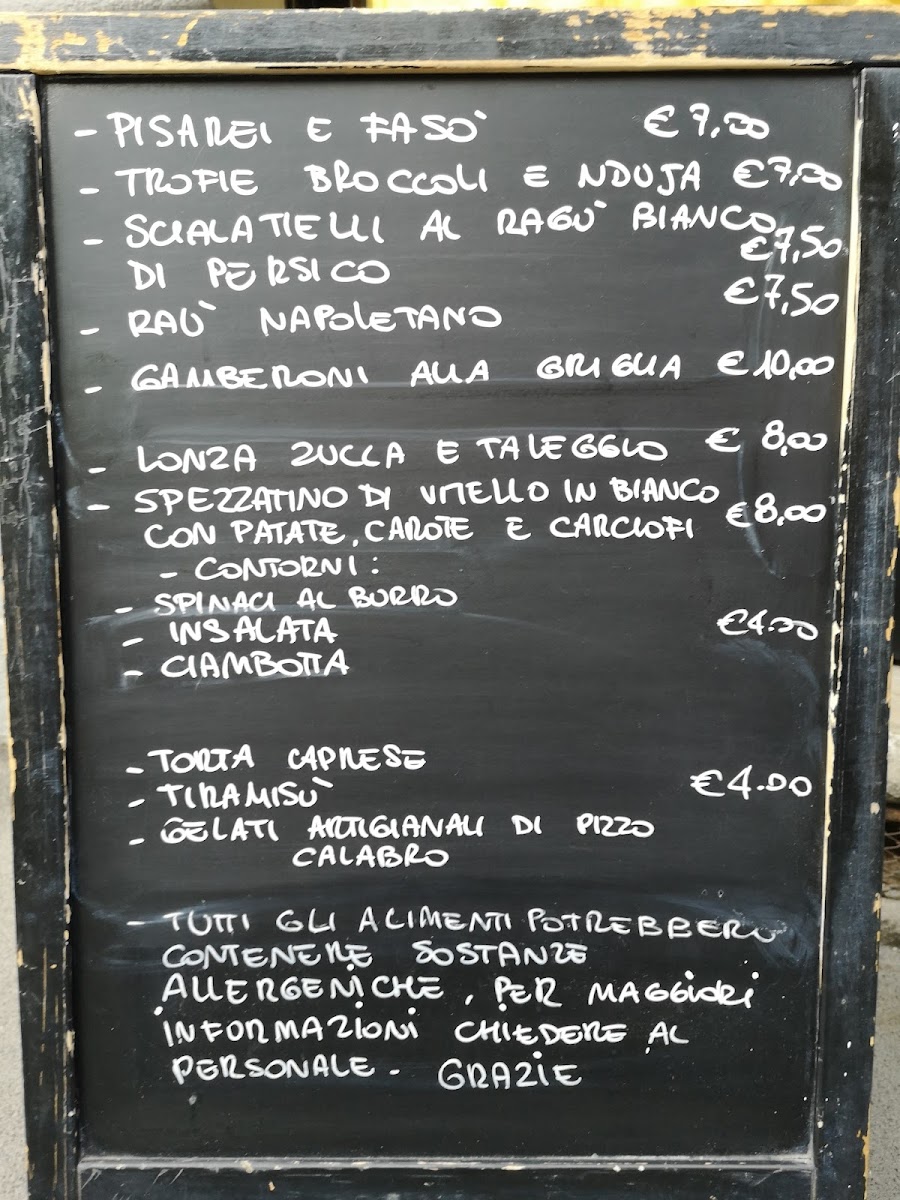 - PISAREI E FASO' €7,00
- TROFIE BROCCOLI E NDUJA €7,00
- SCIALATIELLI AL RAGU' BIANCO
DI PERSICO €7,50
- RAU' NAPOLETANO €7,50
- GAMBERONI ALLA GRIGLIA €10,00
- LONZA ZUCCA E TALEGGIO € 8,00
- SPEZZATINO DI VITELLO IN BIANCO
CON PATATE, CAROTE E CARCIOFI €8,00
- CONTORNI:
- SPINACI AL BURRO
- INSALATA €4.00
- CIAMBOTTA
- TORTA CAPRESE
- TIRAMISU' €4.00
- GELATI ARTIGIANALI DI PIZZO
CALABRO
- TUTTI GLI ALIMENTI POTREBBERO
CONTENERE SOSTANZE
ALLERGENICHE, PER MAGGIORI
INFORMAZIONI CHIEDERE AL
PERSONALE - GRAZIE